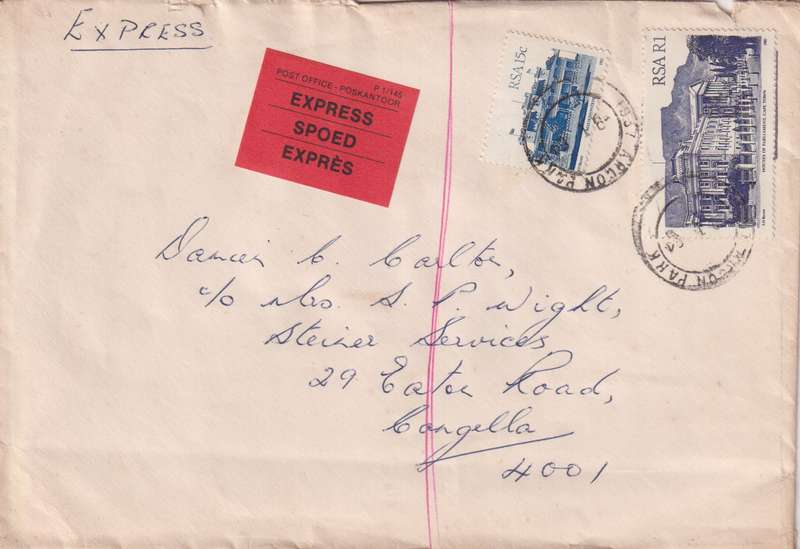 EXPRESS
POST OFFICE - POSKANTOOR
P 1/145
EXPRESS
SPOED
EXPRÈS
RSA 15c
RSA R1
HOUSES OF PARLIAMENT, CAPE TOWN
1937 ARCON PARK
ARCON PARK
C. Carlton,
c/o Mrs. S. P. Wight,
Steiner Services
29 Eaton Road,
Congella
4001